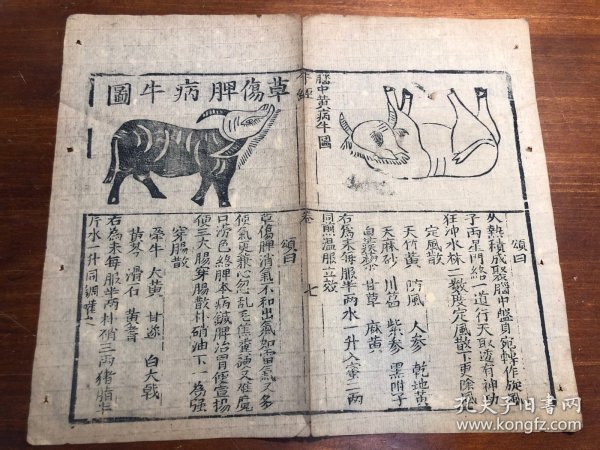 腦中黄病牛圖
頌曰
久熱積成發腦中盤目宛轉作旋風
子丙星門絡一道行天取透有神功
狂冲水株二数度定風散下更除
定風散
天竹黄 防風 人参 乾地黄
天麻砂 川芎 紫参 黑附子
白 甘草 麻黄
右為末每服半两水一升入蜜二两
同煎温服立效
牛經
卷 七
草傷脾病牛圖
頌曰
草傷脾消氣不和出氣如雷氣又多
傾氣更兼心忽乱毛焦 又难魔
口 色終脾本病鍼脾治胃便宣揚
便三大腸穿腸散朴硝油下一為强
穿腸散
牽牛 大黄 甘遂 白大戟
黄芩 滑石 黄耆
右為末每服半两朴硝三两猪脂半
斤水一升同調嚾之
孔夫子旧书网
www.kongfz.com